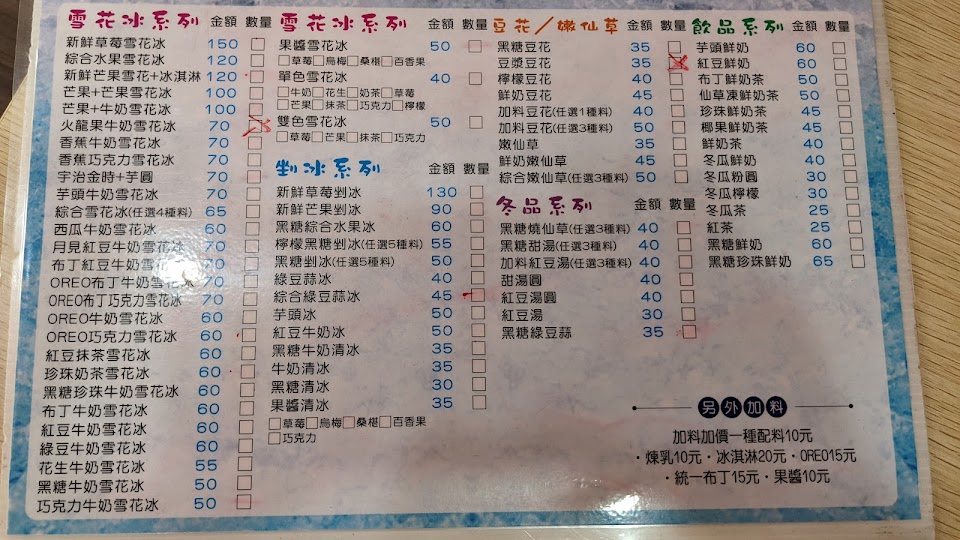 雪花冰系列 金額 數量
新鮮草莓雪花冰 150
綜合水果雪花冰 120
新鮮芒果雪花+冰淇淋 120
芒果+芒果雪花冰 100
芒果+牛奶雪花冰 100
火龍果牛奶雪花冰 70
香蕉牛奶雪花冰 70
香蕉巧克力雪花冰 70
宇治金時+芋圓 70
芋頭牛奶雪花冰 70
綜合雪花冰(任選4種料) 65
西瓜牛奶雪花冰 60
月見紅豆牛奶雪花冰 70
布丁紅豆牛奶雪花冰 70
OREO布丁牛奶雪花冰 70
OREO布丁巧克力雪花冰 70
OREO牛奶雪花冰 60
OREO巧克力雪花冰 60
紅豆抹茶雪花冰 60
珍珠奶茶雪花冰 60
黑糖珍珠牛奶雪花冰 60
布丁牛奶雪花冰 60
紅豆牛奶雪花冰 60
綠豆牛奶雪花冰 60
花生牛奶雪花冰 55
黑糖牛奶雪花冰 50
巧克力牛奶雪花冰 50
雪花冰系列 金額 數量
果醬雪花冰 50
草莓 烏梅 桑椹 百香果
單色雪花冰 40
牛奶 花生 奶茶 草莓
芒果 抹茶 巧克力 檸檬
雙色雪花冰 50
草莓 芒果 抹茶 巧克力
剉冰系列 金額 數量
新鮮草莓剉冰 130
新鮮芒果剉冰 90
黑糖綜合水果冰 60
檸檬黑糖剉冰(任選5種料) 55
黑糖剉冰(任選5種料) 50
綠豆蒜冰 40
綜合綠豆蒜冰 45
芋頭冰 50
紅豆牛奶冰 50
黑糖牛奶清冰 35
牛奶清冰 35
黑糖清冰 30
果醬清冰 35
草莓 烏梅 桑椹 百香果
巧克力
豆花／嫩仙草 金額 數量
黑糖豆花 35
豆漿豆花 35
檸檬豆花 40
鮮奶豆花 45
加料豆花(任選1種料) 45
加料豆花(任選3種料) 50
嫩仙草 35
鮮奶嫩仙草 45
綜合嫩仙草(任選3種料) 50
冬品系列 金額 數量
黑糖燒仙草(任選3種料) 40
黑糖甜湯(任選3種料) 40
加料紅豆湯(任選3種料) 40
甜湯圓 40
紅豆湯圓 40
紅豆湯 30
黑糖綠豆蒜 35
飲品系列 金額 數量
芋頭鮮奶 60
紅豆鮮奶 60
布丁鮮奶茶 50
仙草凍鮮奶茶 50
珍珠鮮奶茶 45
椰果鮮奶茶 45
鮮奶茶 40
冬瓜鮮奶 40
冬瓜粉圓 30
冬瓜檸檬 30
冬瓜茶 25
紅茶 25
黑糖鮮奶 60
黑糖珍珠鮮奶 65
另外加料
加料加價一種配料10元
・煉乳10元・冰淇淋20元・OREO15元
・統一布丁15元・果醬10元